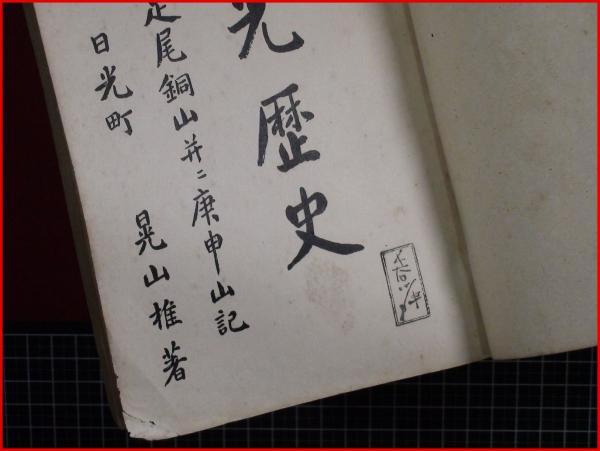 光歴史
足尾銅山并ニ庚申山記
日光町
晃山樵著